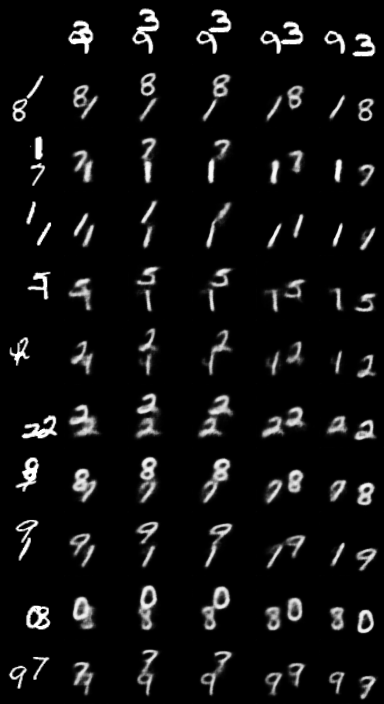 39 39 93 93 93
81 81 81 18 18 18
17 71 71 17 17 17
11 11 11 11 11 11
51 51 15 15 15
2 2 2 12
22 22 22 22 22 22
8 87 87 78 78 78
91 91 91 19 19 19
08 08 08 80 80 80
97 79 79 97 97